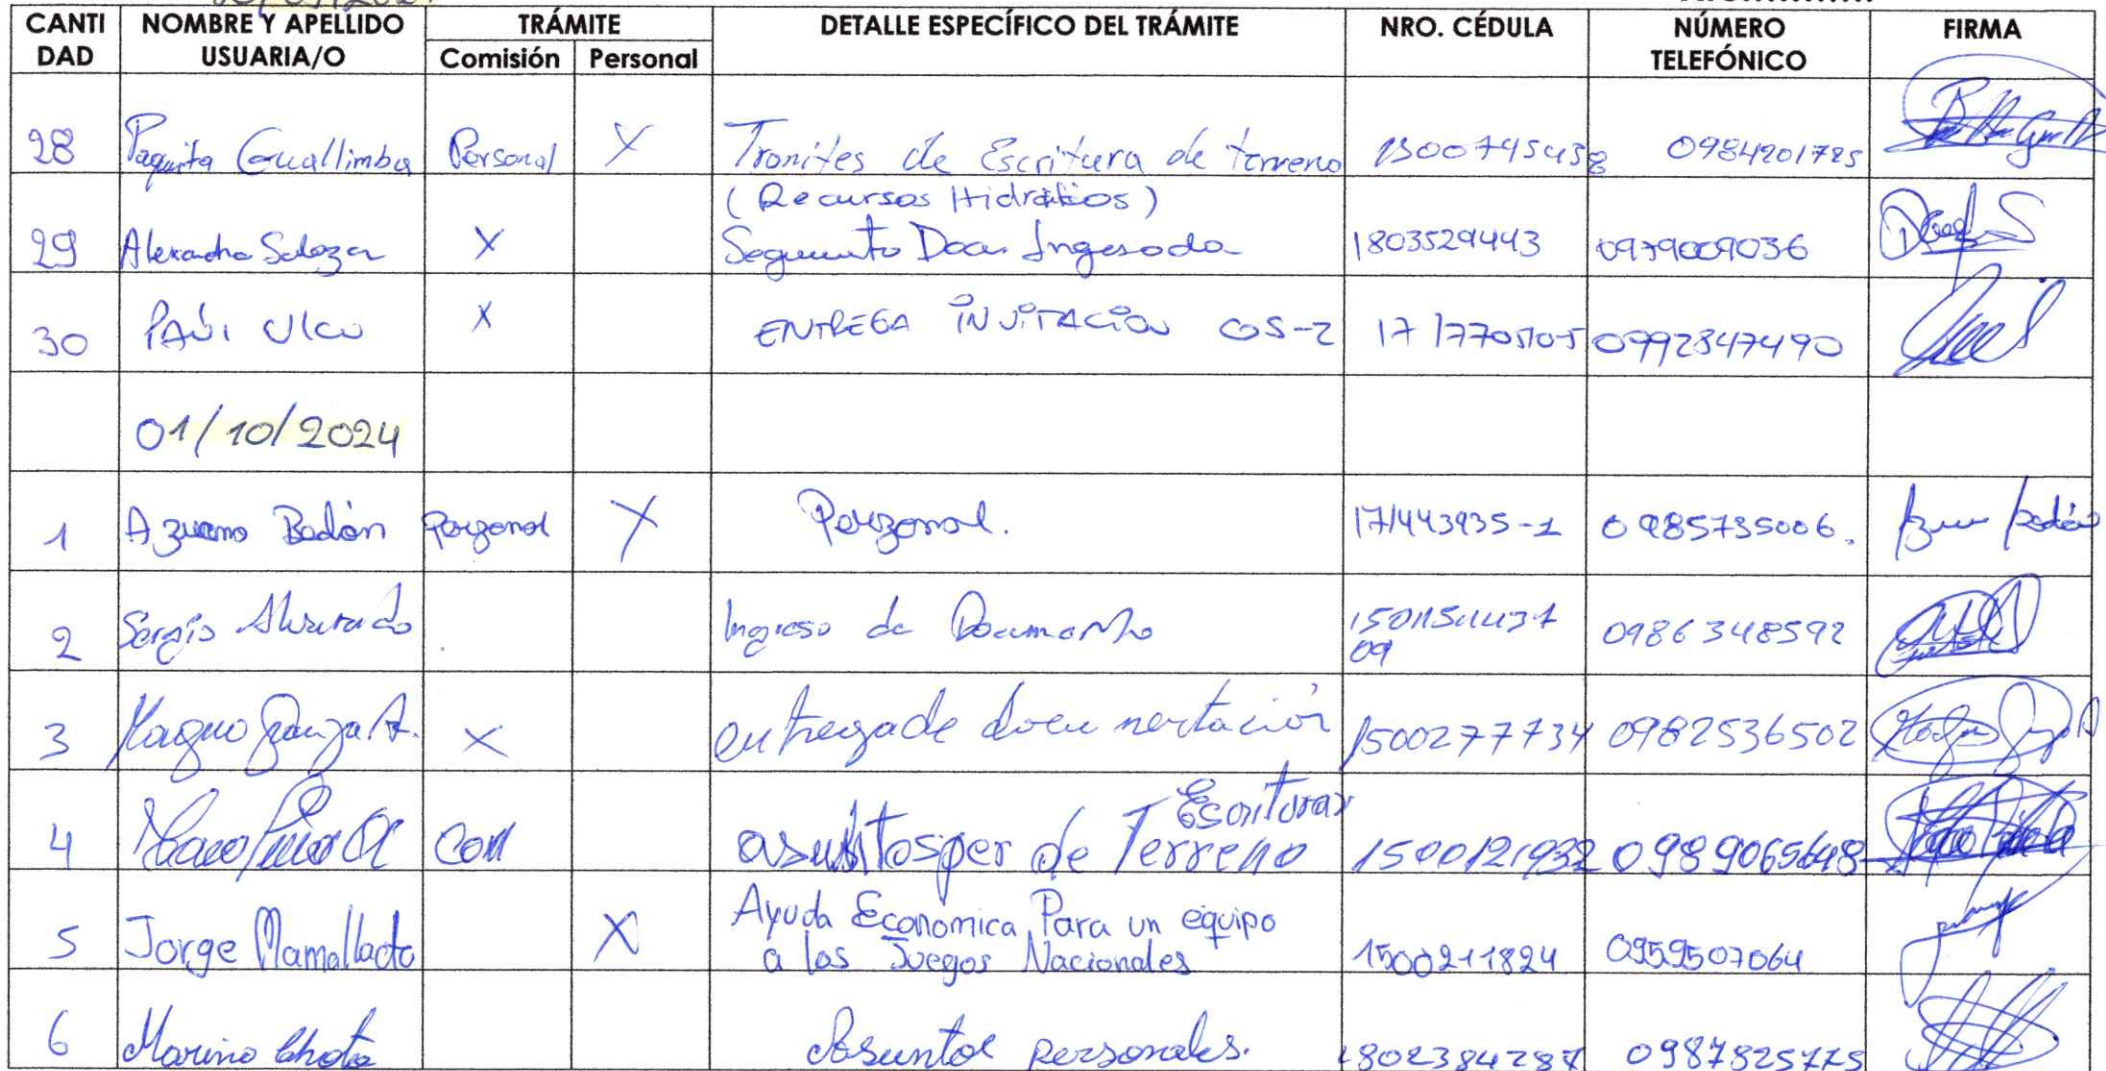 CANTI DAD NOMBRE Y APELLIDO USUARIA/O TRÁMITE Comisión Personal DETALLE ESPECÍFICO DEL TRÁMITE NRO. CÉDULA NÚMERO TELEFÓNICO FIRMA
28 Paquita Guallimba Personal X Tramites de Escritura de terreno 0984201725
(Recursos Hidraticos)
29 Alexandra Salazar X Docu. Ingresada 1803529443 0979009036
30 PAÚl Ulco X ENTREGA INVITACIÓN OS-2 0992347490
01/10/2024
1 Azucena Badón Perzonal X Perzonal. 171443935-1 0985735006.
2 Sergio Alvarado Ingreso de Documento 0986348592
3 Magno X entrega de documentación 1500277734 0982536502
4 Con Escrituras
asuntos per de Terreno 1500121932 0989065648
5 Jorge Mamallacta X Ayuda Economica Para un equipo
a los Juegos Nacionales 1500211824 0959507064
6 Marino Chota Asuntos personales. 1802384287 0987825775